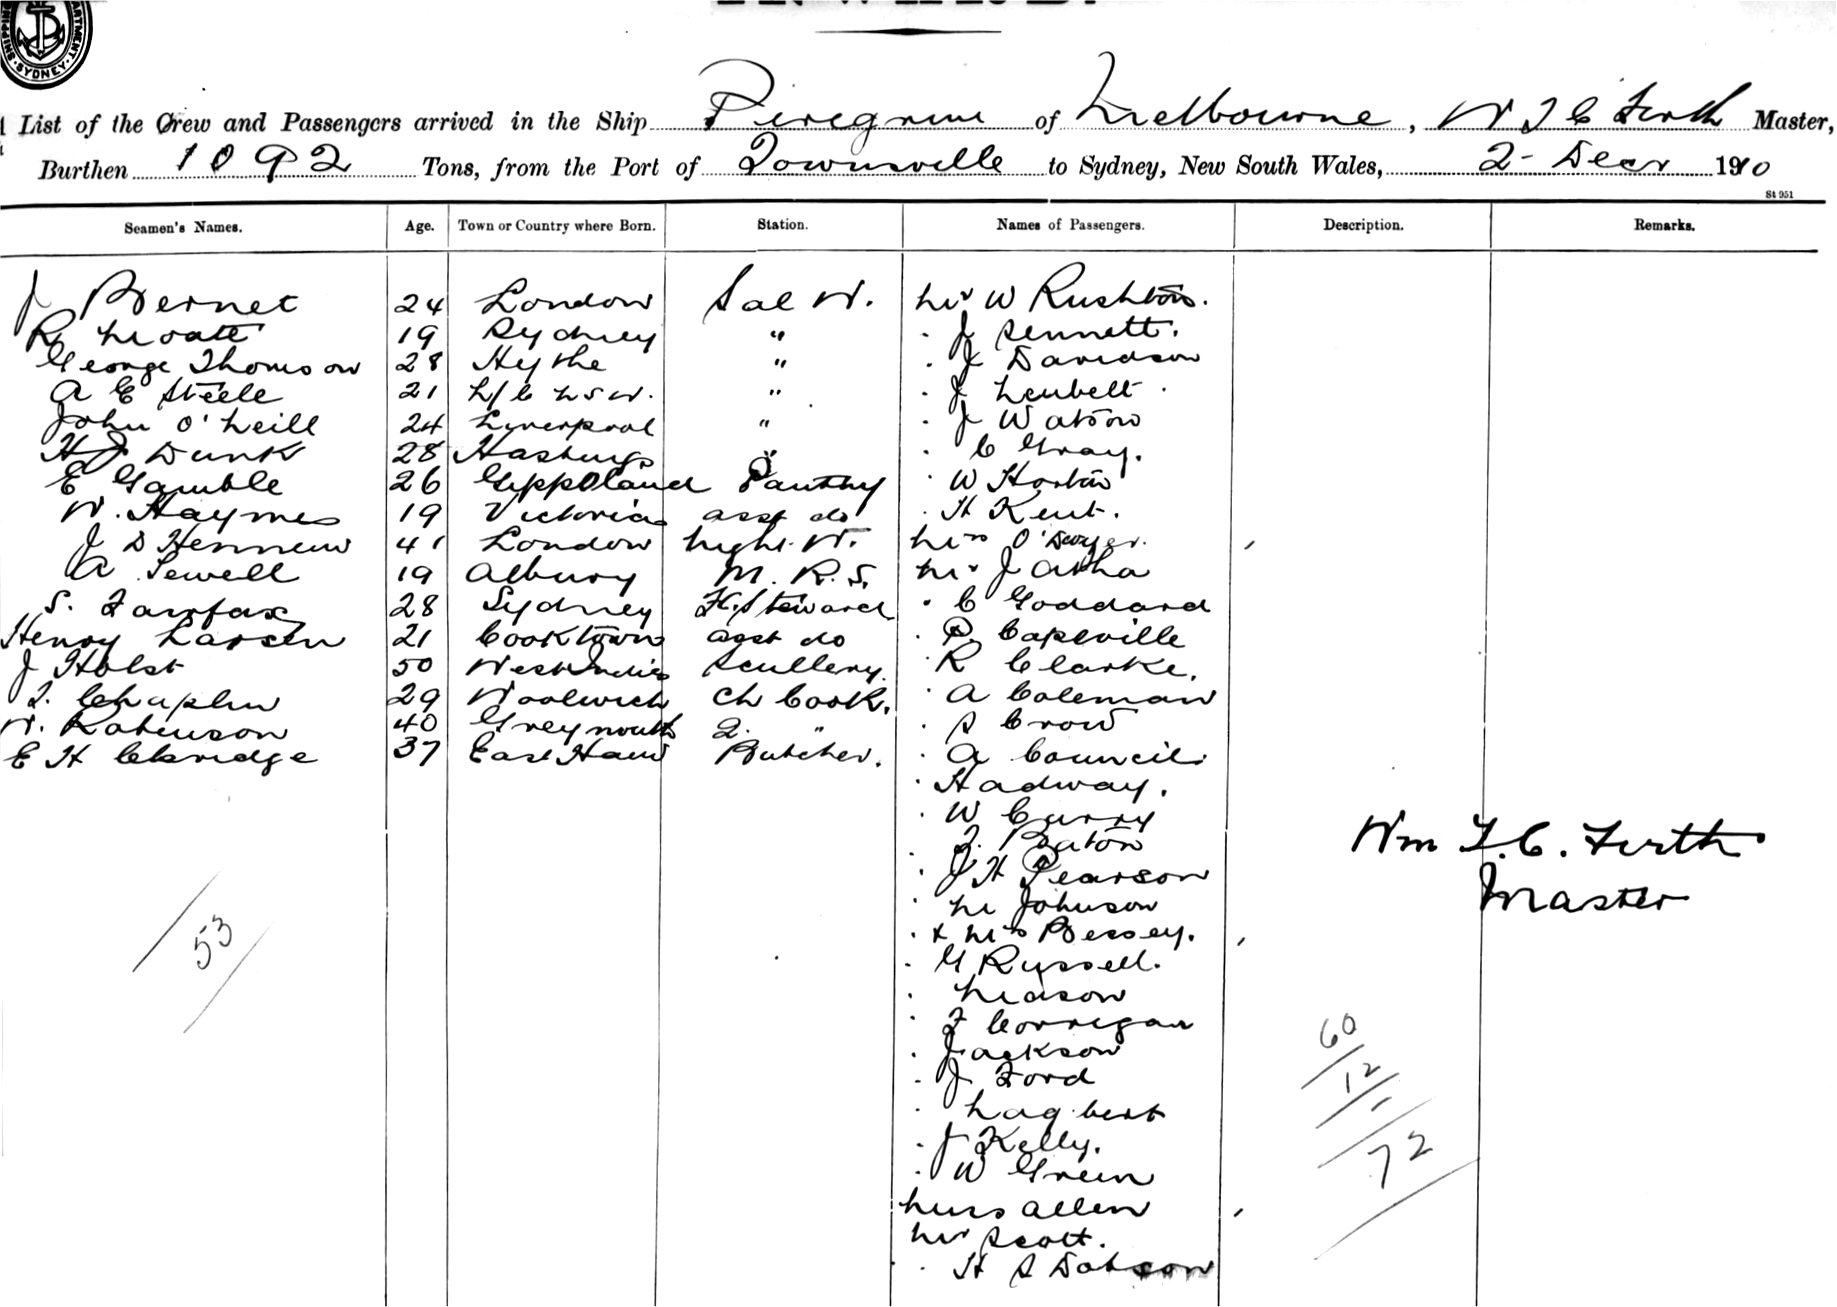 SHIPPING DEPARTMENT SYDNEY
List of the Crew and Passengers arrived in the Ship Peregrine of Melbourne, W T C Firth Master,
Burthen 1092 Tons, from the Port of Townsville to Sydney, New South Wales, 2 - Decr 1910
St 951
Seamen's Names. Age. Town or Country where Born. Station. Names of Passengers. Description. Remarks.
J Bernet 24 London Sal W. Mr W Rushton.
R Moate 19 Sydney " . J Sennett.
George Thomson 28 Hythe " . J Davidson
A E Steele 21 N/C N S W. " . J Neubelt.
John O'Neill 24 Liverpool " . J Watson
H J Dunk 28 Hastings " . C Gray.
E Gamble 26 Gippsland Pantry . W Horton
W. Haymes 19 Victoria asst do . H Kent.
J D Hennew 41 London Night. W. Mrs O'Dwyer.
A Sewell 19 Albury M. R. S. Mr J Atha
S. Fairfax 28 Sydney F.C. Steward . C Goddard
Henry Larsen 21 Cooktown asst do . P. Capeville
J Holst 50 West Indies Scullery. . R Clarke.
T. Chaplin 29 Woolwich Ch Cook. . A Coleman
W. Robinson 40 Greymouth 2. " . S Crow
E H Elsridge 37 East Ham Butcher. . A Council
. Hadway.
. W Curry
. T. Baton
. J H Pearson
. M Johnson
. & Mrs Bessey.
. G Russell.
. Mason
. F Corrigan
. Jackson
. J Ford
. Lag.bert
. J Kelly.
. W Green
Miss Allen
Mr Scott.
. H S Dobson
Wm T. C. Firth
Master
53
60
12
72